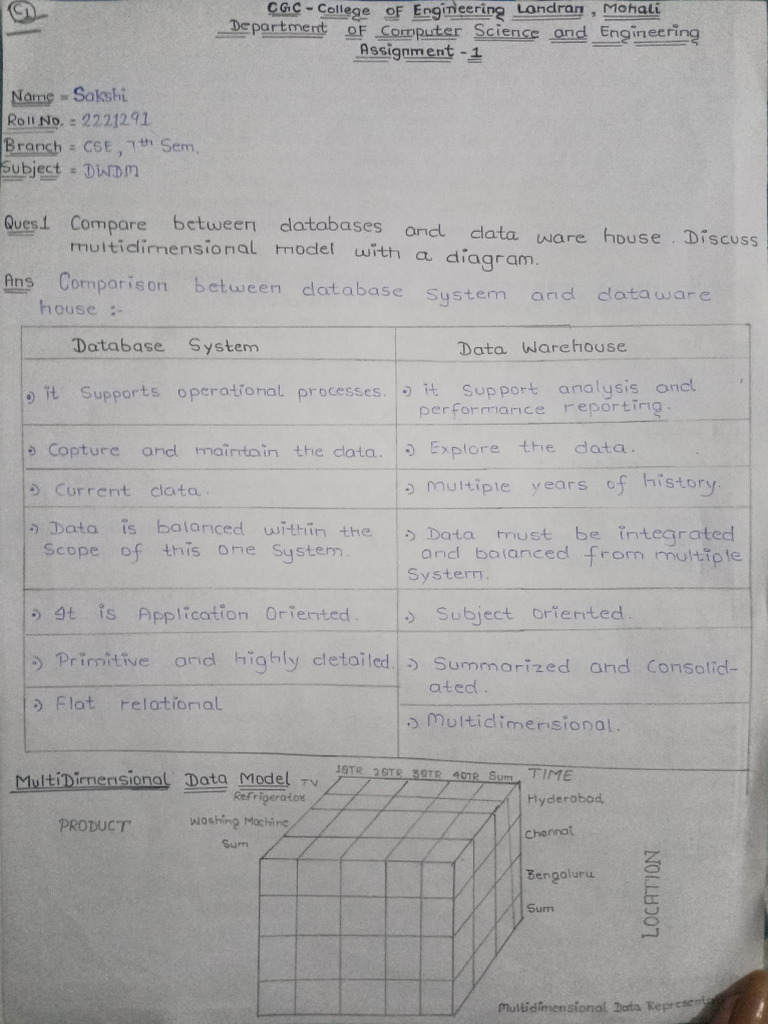 CGC - College of Engineering Landran, Mohali
Department of Computer Science and Engineering
Assignment - 1
Name = Sakshi
Roll No. = 2221291
Branch = CSE, 7th Sem.
Subject = DWDM
Ques1 Compare between databases and data ware house. Discuss
multidimensional model with a diagram.
Ans Comparison between database system and dataware
house :-
Database System
Data Warehouse
it Supports operational processes.
it support analysis and
performance reporting.
Capture and maintain the data.
Explore the data.
Current data.
multiple years of history.
Data is balanced within the
Scope of this one System.
Data must be integrated
and balanced from multiple
System.
It is Application Oriented.
Subject oriented.
Primitive and highly detailed.
Summarized and Consolid-
ated.
Flat relational
Multidimensional.
MultiDimensional Data Model
TV
1QTR 2QTR 3QTR 4QTR Sum
TIME
Refrigerator
Hyderabad
PRODUCT
Washing Machine
Chennai
Sum
Bengaluru
LOCATION
Sum
Multidimensional Data